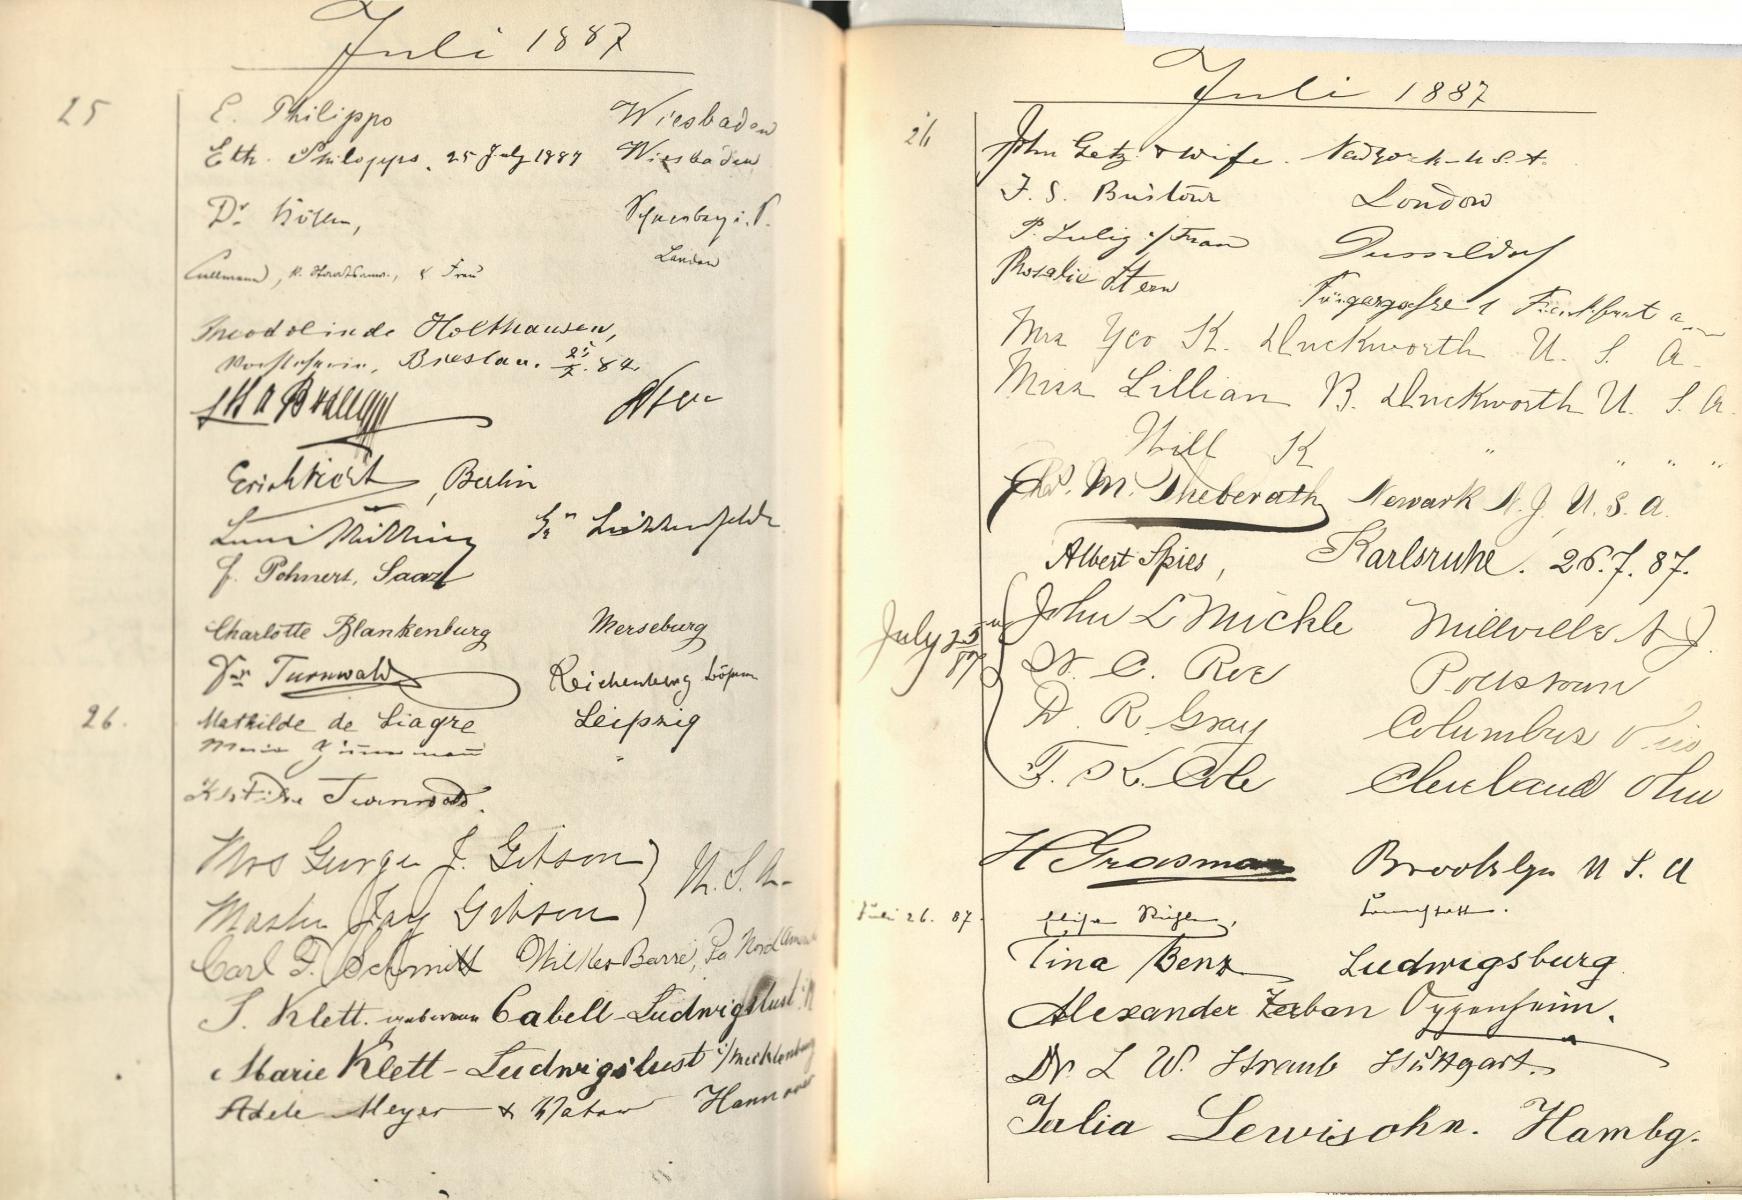 Juli 1887
25 E. Philippo Wiesbaden
Eth. Philippo. 25 July 1887 Wiesbaden
Dr.
London
Cullmann, & Frau
Theodolinde Holthausen,
Vorsteherin, Breslau. 25/7. 87.
Erich Berlin
J. Pohnert, Saaz
Charlotte Blankenburg Merseburg
Turnwald Reichenberg Böhmen
26. Mathilde de Liagre Leipzig
Marie Zimmermann "
Turnwald.
Mrs George J. Gibson } U. S. A.
Master Jay Gibson
Carl F. Schmitt Wilkes Barre, Pa Nord Amerika
J. Klett. Cabell - Ludwigslust i/M
Marie Klett - Ludwigslust i/Mecklenburg
Adele Meyer Hannover
Juli 1887
26 John Getz & wife. New York - U.S.A.
J. S. London
P. Frau Dusseldorf
Rosalie Stern 1 Frankfurt a
Mrs Geo K. Duckworth U. S. A.
Miss Lillian B. Duckworth U. S. A.
Will K " " " "
Chs. M. Theberath Newark N. J. U. S. A.
Albert Spies, Karlsruhe. 26.7.87.
July 25 87 John L Mickle Millville N J.
W. C. Roe Pottstown
D. R. Gray Columbus
T. K. Cole Cleveland Ohio
H Grasman Brooklyn U S. A
Juli 26. 87.
Tina Benz Ludwigsburg
Alexander Zerban Oggersheim.
Dr. L W. Straub Stuttgart.
Julia Lewisohn. Hambg.